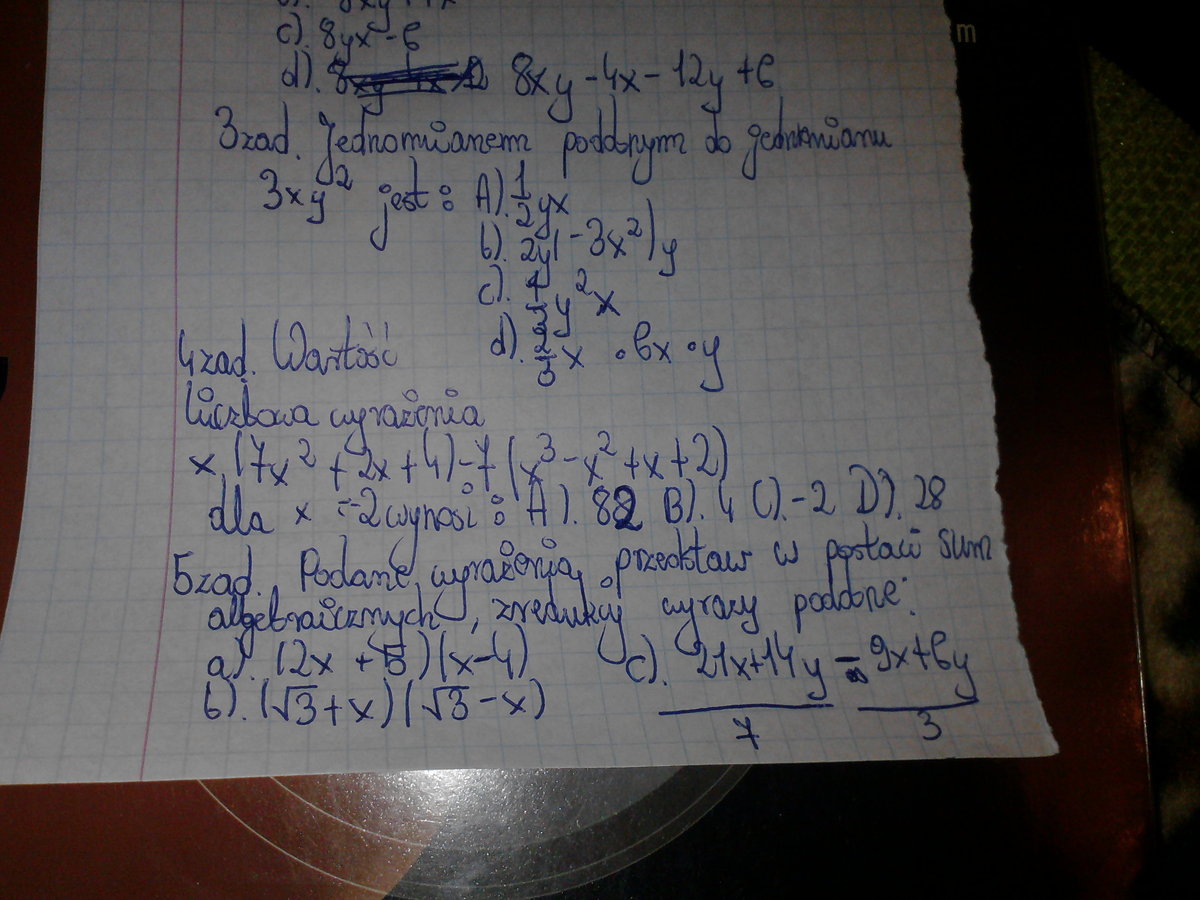 c). 8yx - 6
d). 8xy - 4x - 12y + 6
3zad. Jednomianem podobnym do jednomianu
3xy² jest: A). 1/2 yx
b). 2y(-3x²)y
c). y²x
d). 2/3 x · 6x · y
4zad. Wartość
liczbowa wyrażenia
x(7x² + 2x + 4) - 7(x³ - x² + x + 2)
dla x = -2 wynosi: A). 82 B). 4 C). -2 D). 28
5zad. Podane wyrażenia przedstaw w postaci sum
algebraicznych, zredukuj wyrazy podobne:
a). (2x + √3)(x - 4) c). 21x+14y/7 - 9x+6y/3
b). (√3 + x)(√3 - x)